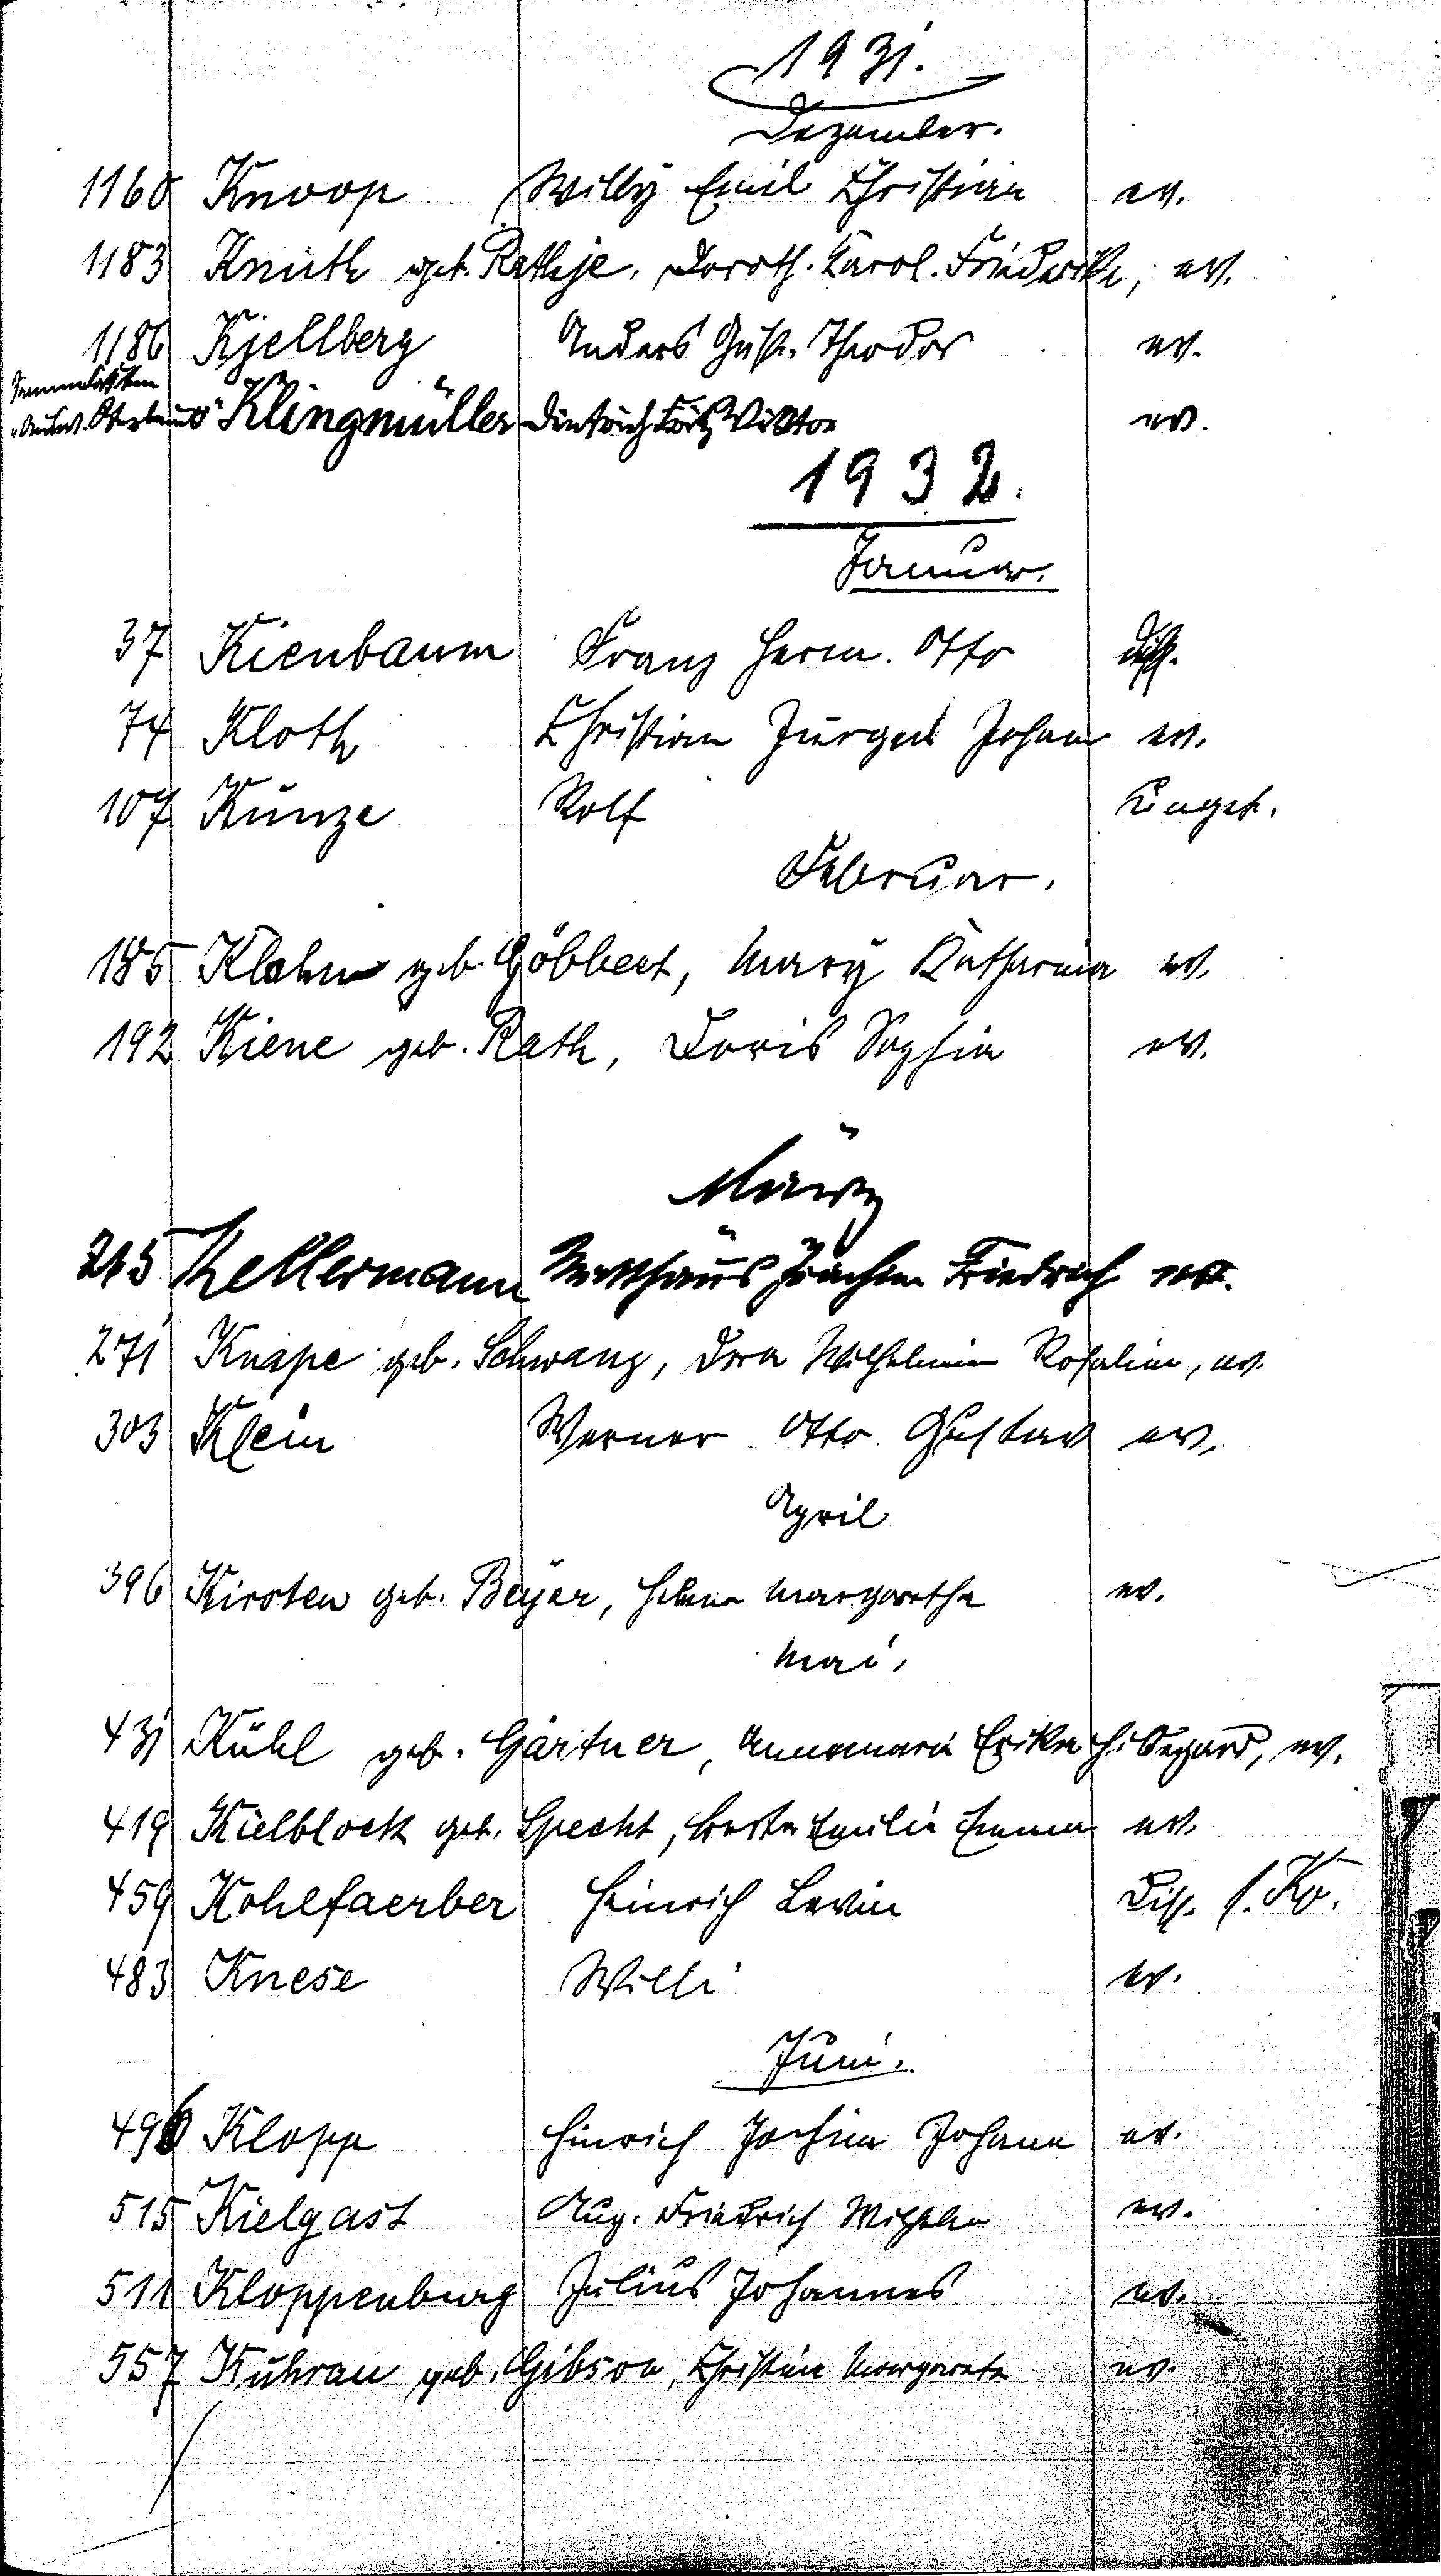 1931.
Dezember.
1160 Knoop Willy Emil Christian ev.
1183 Knuth geb. Rathje, Doroth. Karol. Friederike, ev.
1186 Kjellberg Anders Gust. Theodor ev.
Klingmüller Dietrich Fritz Viktor ev.
1932.
Januar.
37 Kienbaum Franz Herm. Otto diss.
74 Kloth Christian Jürgen Johann ev.
107 Kunze Rolf unget.
Februar.
185 Klahn geb. Göbbert, Mary Katharina ev.
192 Kiene geb. Rath, Doris Sophie ev.
März
215 Kellermann Matthäus Joachim Friedrich ev.
271 Knape geb. Schwanz, Dora Wilhelmine Rosaline, ev.
303 Klein Werner Otto Gustav ev.
April
396 Kirsten geb. Beyer, Helene Margarethe ev.
Mai.
431 Kühl geb. Gärtner, Annemarie Erika Hildegard, ev.
419 Kielblock geb. Specht, Berta Emilie Emma ev.
459 Kohlfaerber Heinrich Levin Diss. f. Ko.
483 Knese Willi ev.
Juni.
496 Klopp Hinrich Jochim Johann ev.
515 Kielgast Aug. Friedrich Wilhelm ev.
511 Kloppenburg Julius Johannes ev.
557 Kuhrau geb. Gibson, Christine Margareta ev.